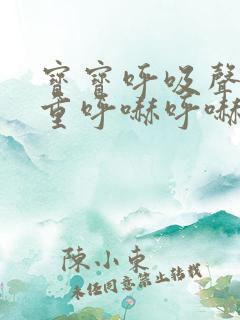 寶寶呼吸聲
重呼嚇呼嚇
陳小東
未经同意禁止转载